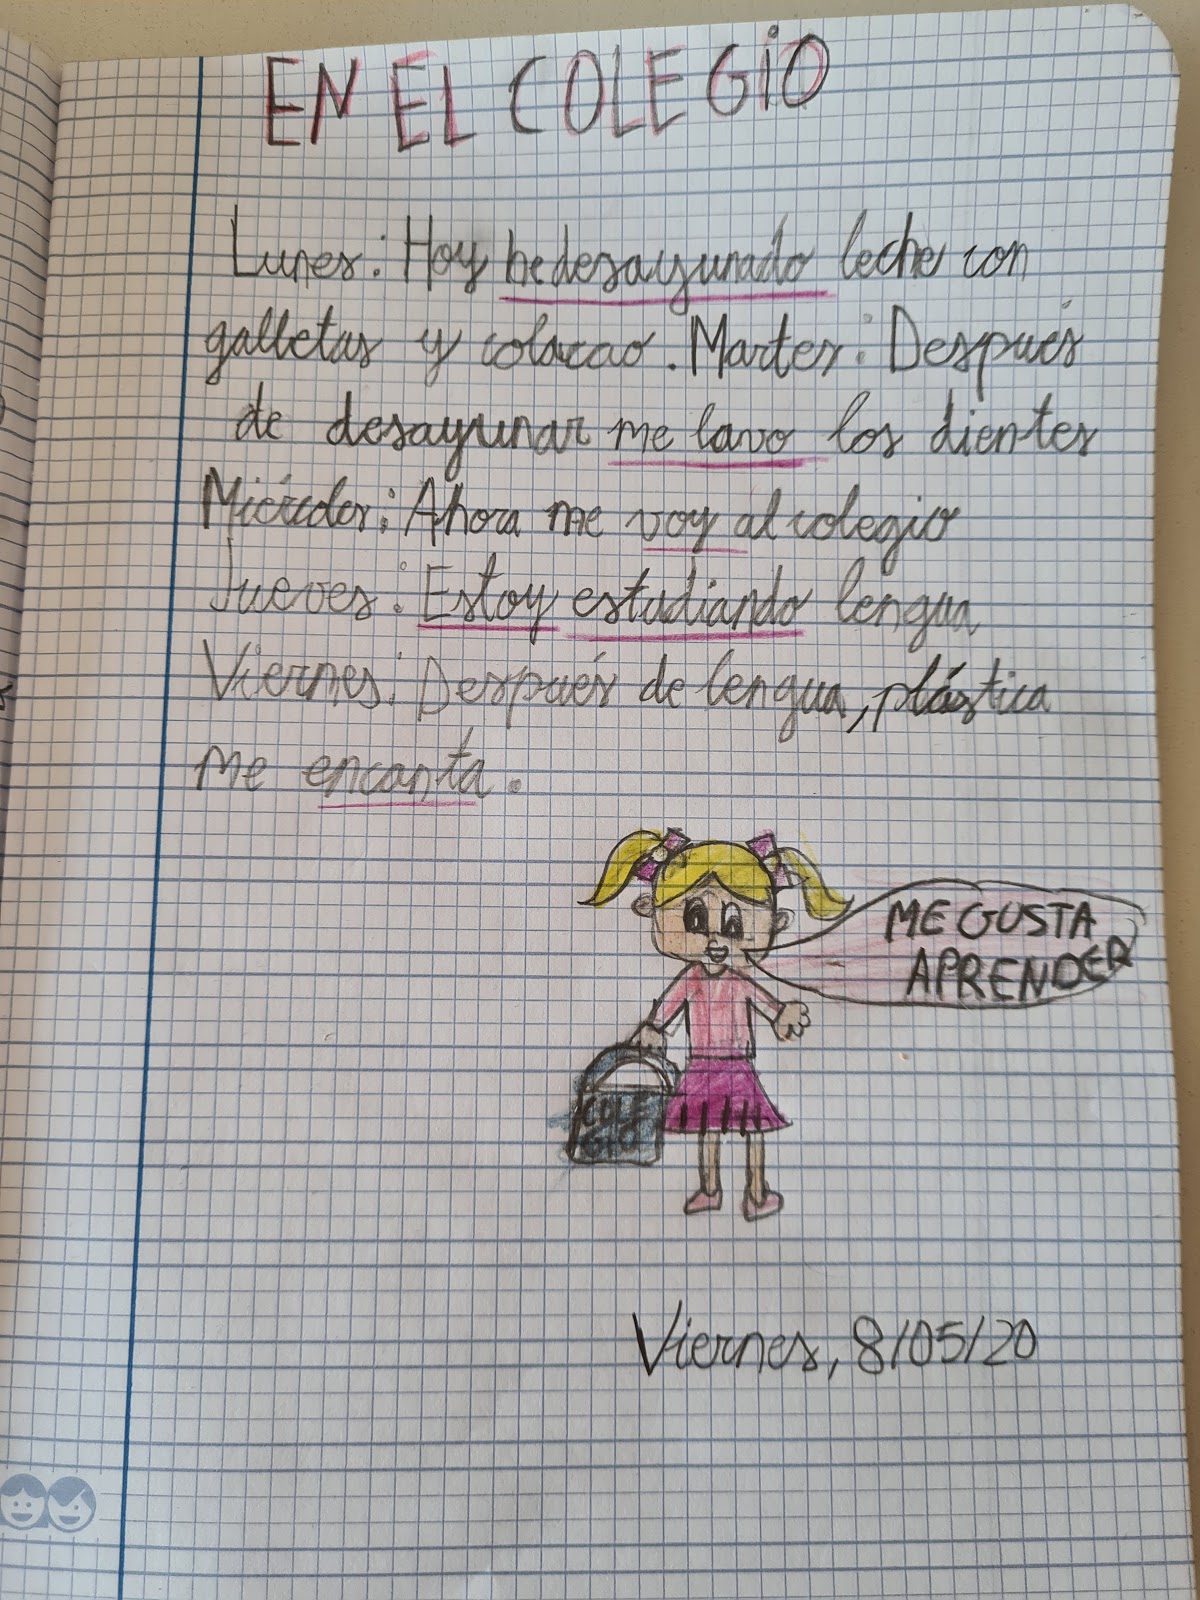 EN EL COLEGIO
Lunes: Hoy he desayunado leche con
galletas y colacao. Martes: Después
de desayunar me lavo los dientes
Miércoles: Ahora me voy al colegio
Jueves: Estoy estudiando lengua
Viernes: Después de lengua, plástica
me encanta.
ME GUSTA
APRENDER
COLE
GIO
Viernes, 8/05/20